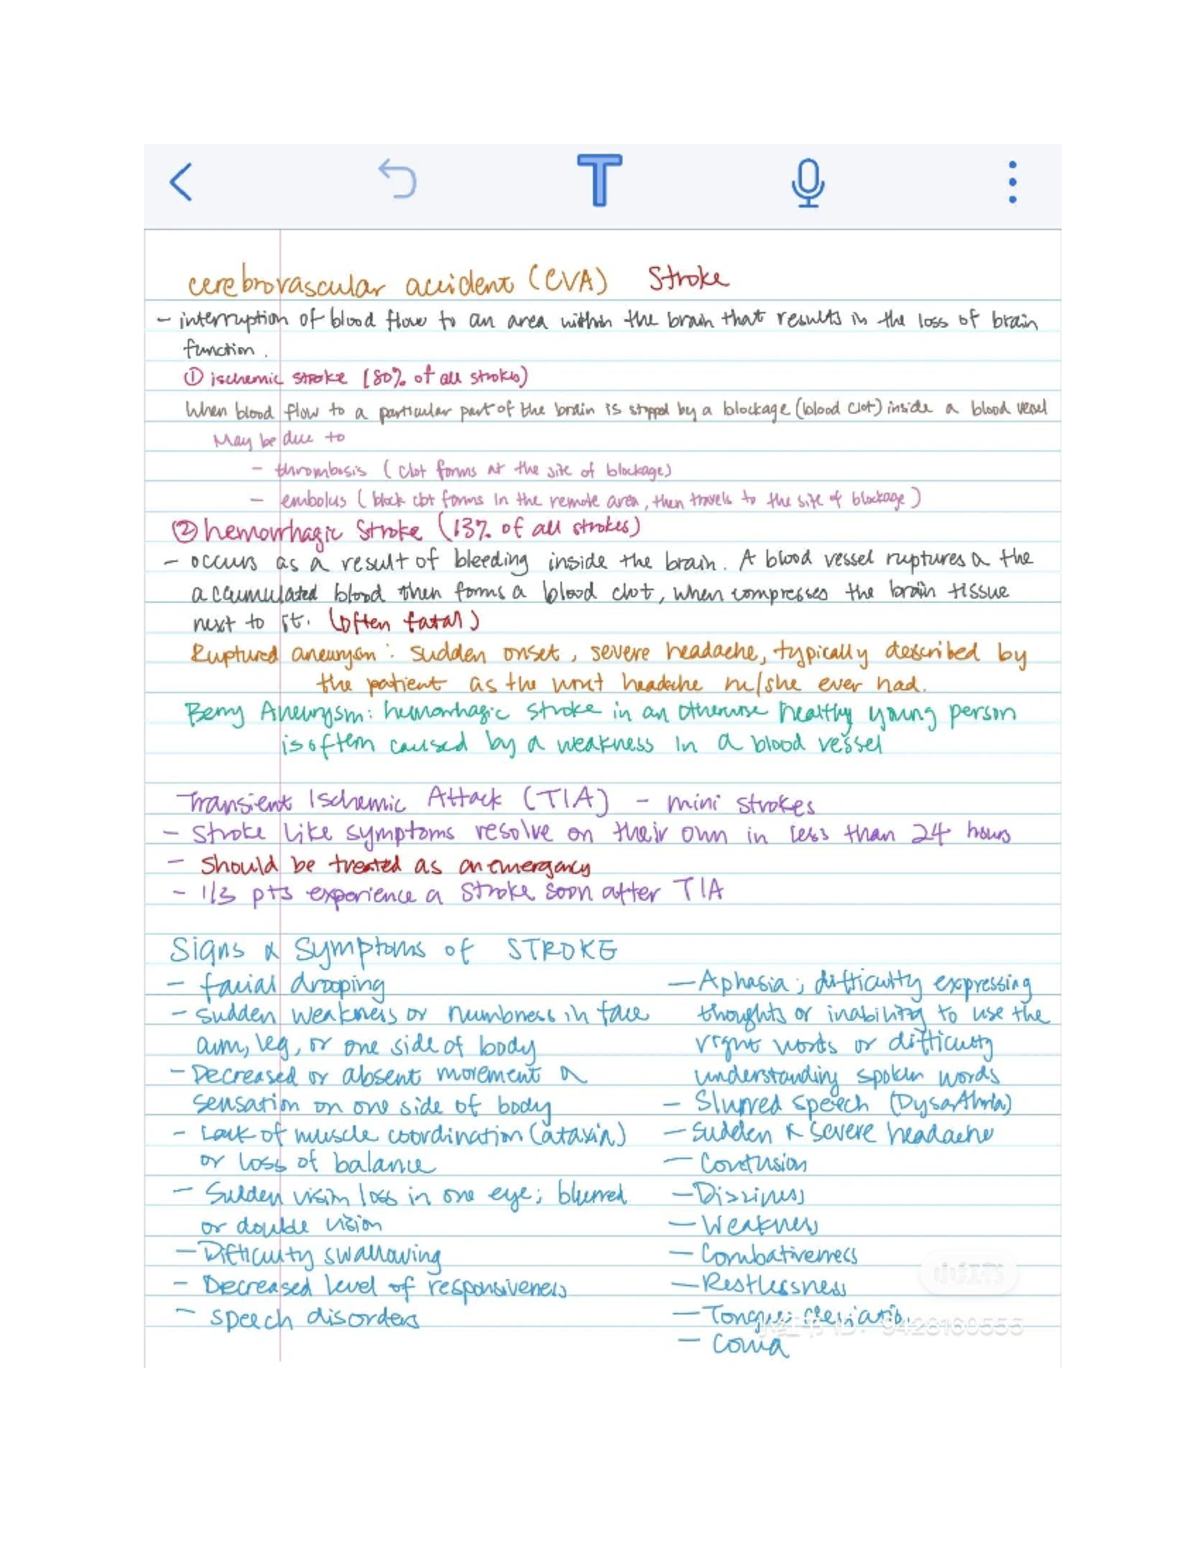 T
cerebrovascular accident (CVA) Stroke
- interruption of blood flow to an area within the brain that results in the loss of brain
function.
① ischemic stroke (80% of all strokes)
When blood flow to a particular part of the brain is stopped by a blockage (blood clot) inside a blood vessel
May be due to
- thrombosis (clot forms at the site of blockage)
- embolus (block clot forms in the remote area, then travels to the site of blockage)
② hemorrhagic Stroke (13% of all strokes)
- occurs as a result of bleeding inside the brain. A blood vessel ruptures & the
accumulated blood then forms a blood clot, when compresses the brain tissue
next to it. (often fatal)
Ruptured aneurysm: sudden onset, severe headache, typically described by
the patient as the worst headache he/she ever had.
Berry Aneurysm: hemorrhagic stroke in an otherwise healthy young person
is often caused by a weakness in a blood vessel
Transient Ischemic Attack (TIA) - mini strokes
- Stroke like symptoms resolve on their own in less than 24 hours
- Should be treated as an emergency
- 1/3 pts experience a stroke soon after TIA
Signs & Symptoms of STROKE
- facial drooping
- Sudden weakness or numbness in face
arm, leg, or one side of body
- Decreased or absent movement &
sensation on one side of body
- Lack of muscle coordination (ataxia)
or loss of balance
- Sudden vision loss in one eye; blurred
or double vision
- Difficulty swallowing
- Decreased level of responsiveness
- speech disorders
- Aphasia; difficulty expressing
thoughts or inability to use the
right words or difficulty
understanding spoken words
- Slurred speech (Dysarthria)
- Sudden & severe headache
- Confusion
- Dizziness
- Weakness
- Combativeness
- Restlessness
- Tongue deviation
- Coma
小红书
小红书 ID: 9428160555